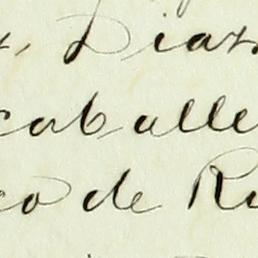 , Diaz
caballe
co de R